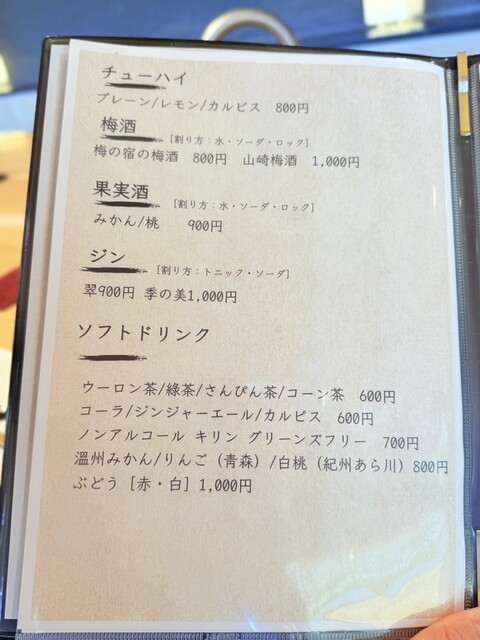 チューハイ
プレーン/レモン/カルピス 800円
梅酒 [割り方：水・ソーダ・ロック]
梅の宿の梅酒 800円 山崎梅酒 1,000円
果実酒 [割り方：水・ソーダ・ロック]
みかん/桃 900円
ジン [割り方：トニック・ソーダ]
翠900円 季の美1,000円
ソフトドリンク
ウーロン茶/緑茶/さんぴん茶/コーン茶 600円
コーラ/ジンジャーエール/カルピス 600円
ノンアルコール キリン グリーンズフリー 700円
温州みかん/りんご（青森）/白桃（紀州あら川）800円
ぶどう［赤・白］1,000円